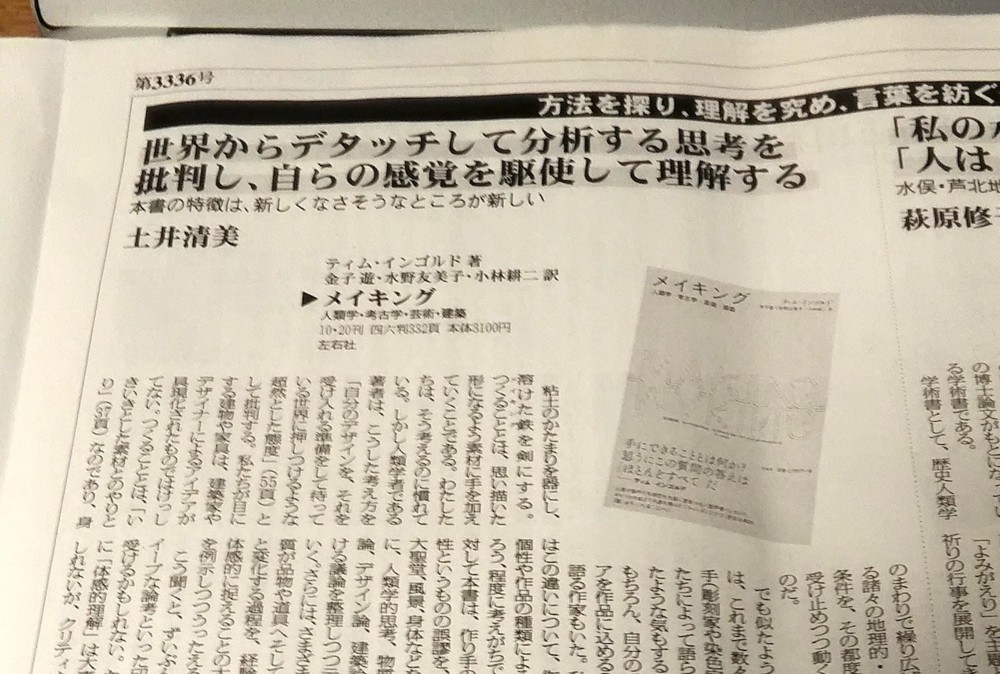 第3336号
方法を探り、理解を究め、言葉を紡ぐ
世界からデタッチして分析する思考を
批判し、自らの感覚を駆使して理解する
本書の特徴は、新しくなさそうなところが新しい
土井清美
ティム・インゴルド 著
金子 遊・水野友美子・小林耕二 訳
▶メイキング
人類学・考古学・芸術・建築
10・20刊 四六判332頁 本体3100円
左右社
メイキング
人類学・考古学・芸術・建築
手にできることとは何か?
思うにこの質問の答えは
「ほとんどすべて」だ
粘土のかたまりを器にし、
溶けた鉄を剣にする。
つくることとは、思い描いた
形になるよう素材に手を加え
ていくことである。わたした
ちは、そう考えるのに慣れて
いる。しかし人類学者である
著者は、こうした考え方を
「自分のデザインを、それを
受け入れる準備をして待って
いる世界に押しつけるような
超然とした態度」(55頁)と
して批判する。私たちが目に
する建物や家具は、建築家や
デザイナーによるアイデアが
具現化されたものではけっし
てない。つくることとは、「い
きいきとした素材とのやりと
り」(57頁)なのであり、身
でも似たよう
は、これまで数々
手、彫刻家や染色家
たちによって語ら
れたような気もする
もちろん、自分の
アを作品に込める
語る作家もいた。
はこの違いについて、
個性や作品の種類によ
ろう、程度に考えがちで
対して本書は、作り手の
性というものの誤謬を、
大聖堂、風景、身体などな
に、人類学的思考、物質
論、デザイン論、建築論
ける議論を整理しつつ
いく。さらには、さまざま
質が品物や道具へそして
と変化する過程を、経験
体感的に捉えることの
を例示しつつうったえる
こう聞くと、ずいぶん
イーブな論考といった印
受けるかもしれない。
に「体感的理解」は大事
しれないが、クリティ
「私の
「人は
水俣・芦北地
萩原修
の博士論文がもとにな
る学術書である。
学術書として、歴史人類学
「よみがえり」を主題
祈りの行事を展開してき
のまわりで繰り広
る諸々の地理的・
条件を、その都度
受け止めつつ動く
のだ。